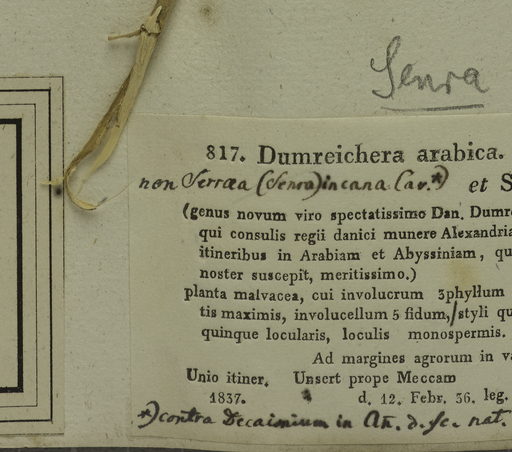 Senra
817. Dumreichera arabica.
non Serræa (Senra) incana Cav.*) et S
(genus novum viro spectatissimo Dan. Dumre
qui consulis regii danici munere Alexandria
itineribus in Arabiam et Abyssiniam, qu
noster suscepit, meritissimo.)
planta malvacea, cui involucrum 3phyllum
tis maximis, involucellum 5 fidum, styli qu
quinque locularis, loculis monospermis.
Ad margines agrorum in va
Unio itiner. Unsert prope Meccam
1837. d. 12. Febr. 36. leg.
*) contra Decaisnium in An. d. sc. nat.